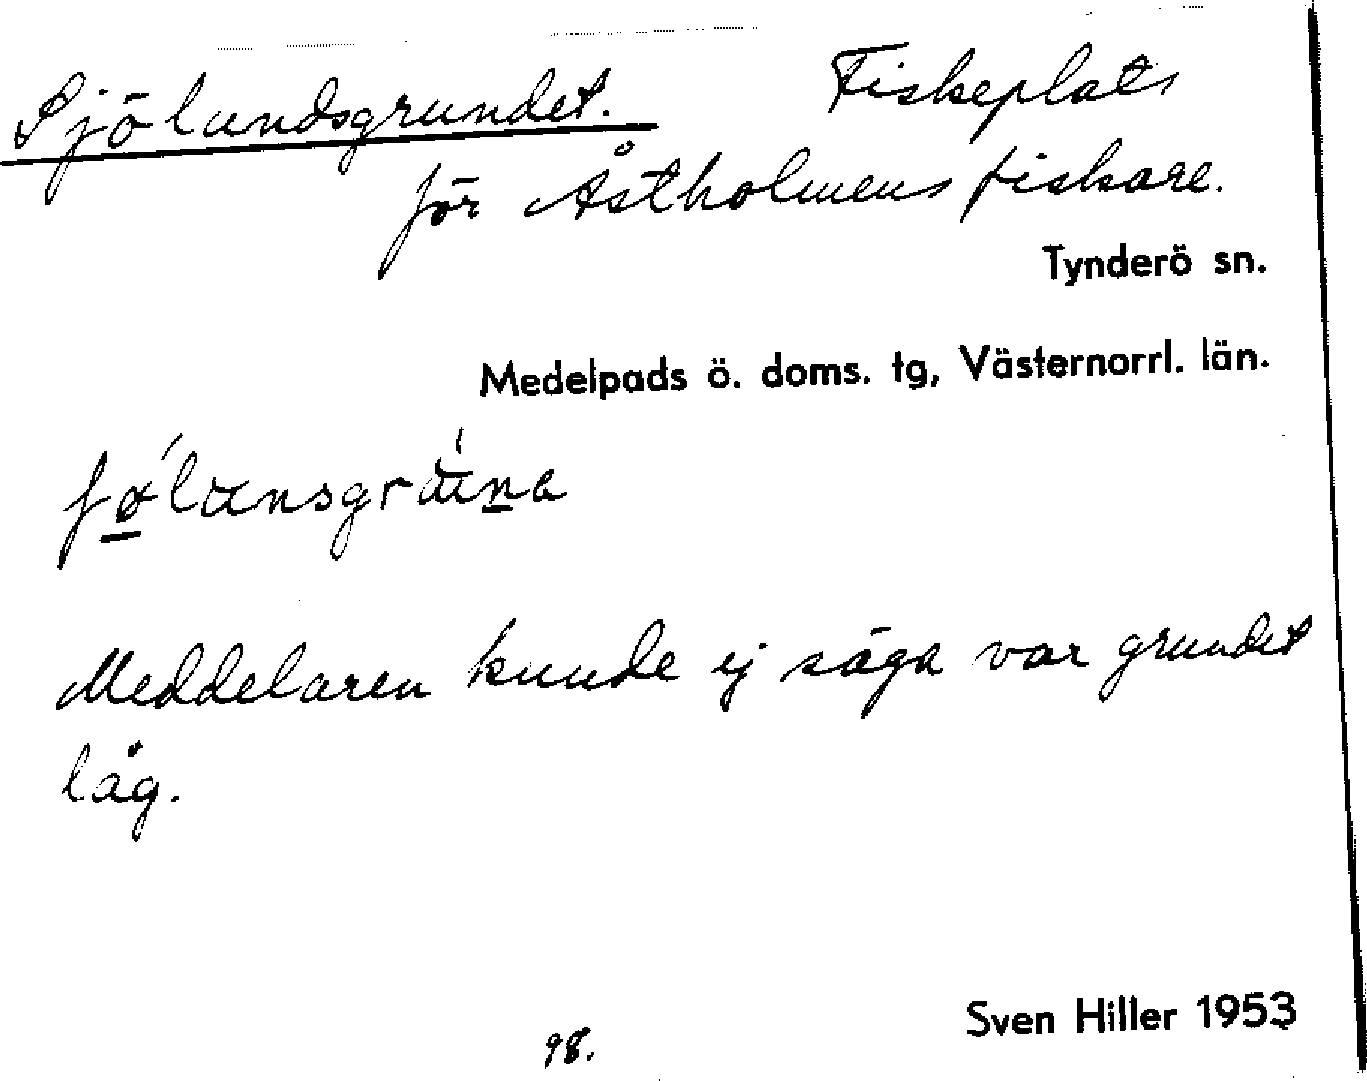 Sjölundsgrundet. Fiskeplats
för Åstholmens fiskare.
Tynderö sn.
Medelpads ö. doms. tg, Västernorrl. län.
Meddelaren kunde ej säga var grundet
låg.
Sven Hiller 1953
98.